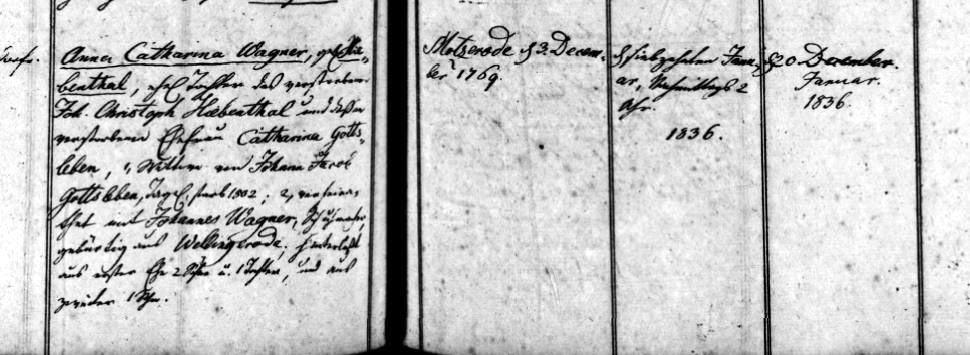 Anna Catharina Wagner, geb. Hie-
benthal, ehel. Tochter des verstorbenen
Joh. Christoph Hebenthal und dessen
verstorbenen Ehefrau Catharina Gotts-
leben, 1, Wittwe von Johann Jacob
Gottsleben, starb 1802; 2, 
mit Johannes Wagner, Schuhmacher,
gebürtig aus Wellingerode, hinterläßt
aus erster Ehe 2 Söhne u. 1 Tochter, und aus
zweiter 1 Sohn.
Motzerode d 3. Decem-
ber 1769.
d siebzehnten Janu-
ar, Nachmittags 2
Uhr.
1836.
d 20 December.
Januar.
1836.